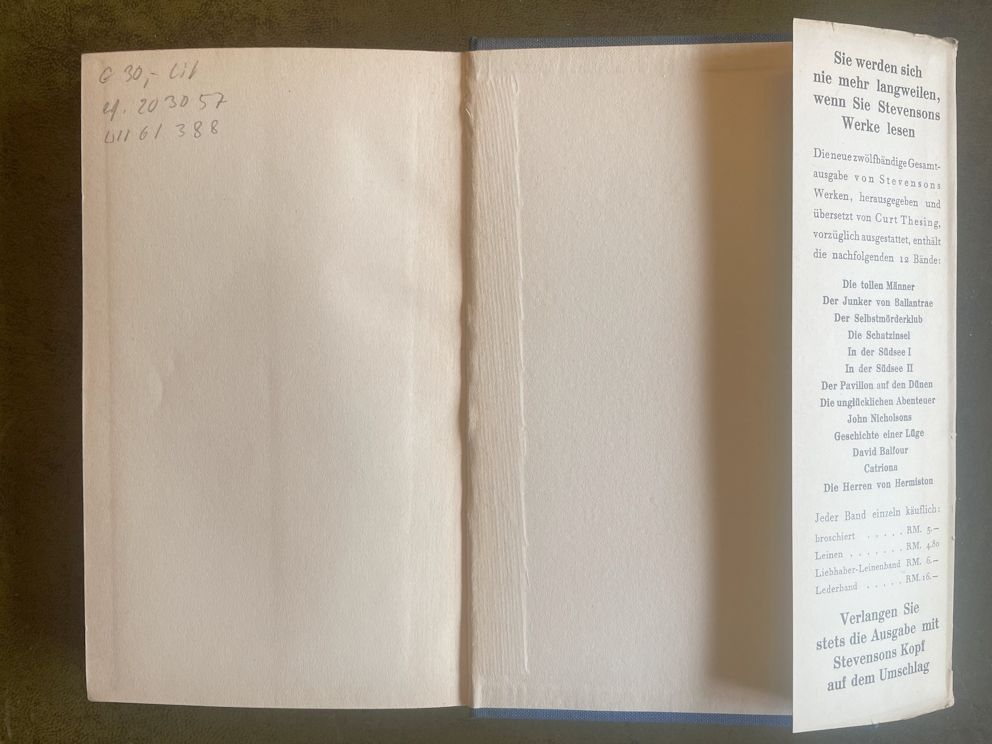 30,-
203057
61 388
Sie werden sich
nie mehr langweilen,
wenn Sie Stevensons
Werke lesen
Die neue zwölfbändige Gesamt-
ausgabe von Stevensons
Werken, herausgegeben und
übersetzt von Curt Thesing,
vorzüglich ausgestattet, enthält
die nachfolgenden 12 Bände:
Die tollen Männer
Der Junker von Ballantrae
Der Selbstmörderklub
Die Schatzinsel
In der Südsee I
In der Südsee II
Der Pavillon auf den Dünen
Die unglücklichen Abenteuer
John Nicholsons
Geschichte einer Lüge
David Balfour
Catriona
Die Herren von Hermiston
Jeder Band einzeln käuflich:
broschiert . . . . . RM. 3.–
Leinen . . . . . . . RM. 4.80
Liebhaber-Leinenband RM. 6.–
Lederband . . . . . RM. 16.–
Verlangen Sie
stets die Ausgabe mit
Stevensons Kopf
auf dem Umschlag